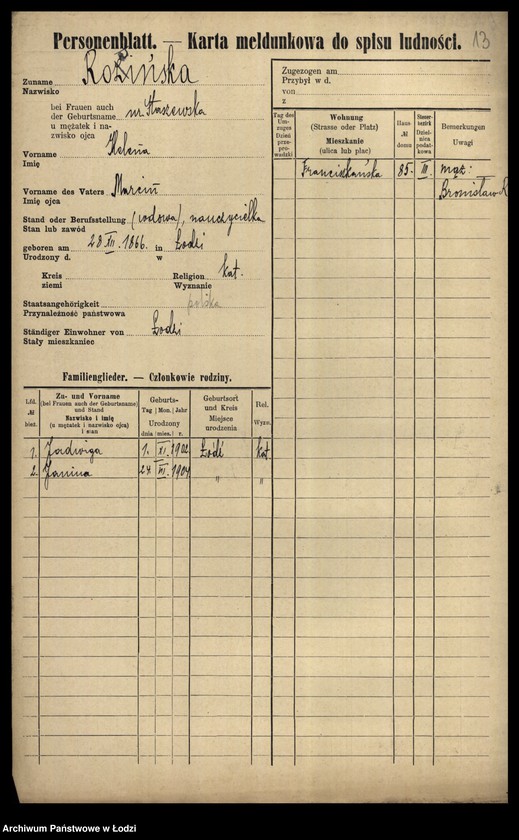 Personenblatt. — Karta meldunkowa do spisu ludności. 13
Zuname Rozińska
Nazwisko
bei Frauen auch
der Geburtsname ur. Staszewska
u mężatek i na-
zwisko ojca
Vorname Helena
Imię
Vorname des Vaters Marcin
Imię ojca
Stand oder Berufsstellung (wdowa), nauczycielka
Stan lub zawód
geboren am 28 XII. 1866. in Łodzi
Urodzony d. w
Kreis Religion kat.
ziemi Wyznanie
Staatsangehörigkeit polska
Przynależność państwowa
Ständiger Einwohner von Łodzi
Stały mieszkaniec
Familienglieder. — Członkowie rodziny.
Lfd. № bież.
Zu- und Vorname
(bei Frauen auch der Geburtsname)
und Stand
Nazwisko i imię
(u mężatek i nazwisko ojca)
i stan
Geburts-
Tag Mon. Jahr
Urodzony
dnia mies. r.
Geburtsort
und Kreis
Miejsce
urodzenia
Rel.
Wyzn.
1. Jadwiga 1. XI. 1902 Łódź kat.
2. Janina 24. 1904 " "
Zugezogen am
Przybył w d.
von
z
Tag des
Um-
zuges
Dzień
prze-
prowadzki
Wohnung
(Strasse oder Platz)
Mieszkanie
(ulica lub plac)
Haus
№
domu
Steuer-
bezirk
Dziel-
nica
podat-
kowa
Bemerkungen
Uwagi
Franciszkańska 85. III. mąż:
Bronisław R
Archiwum Państwowe w Łodzi